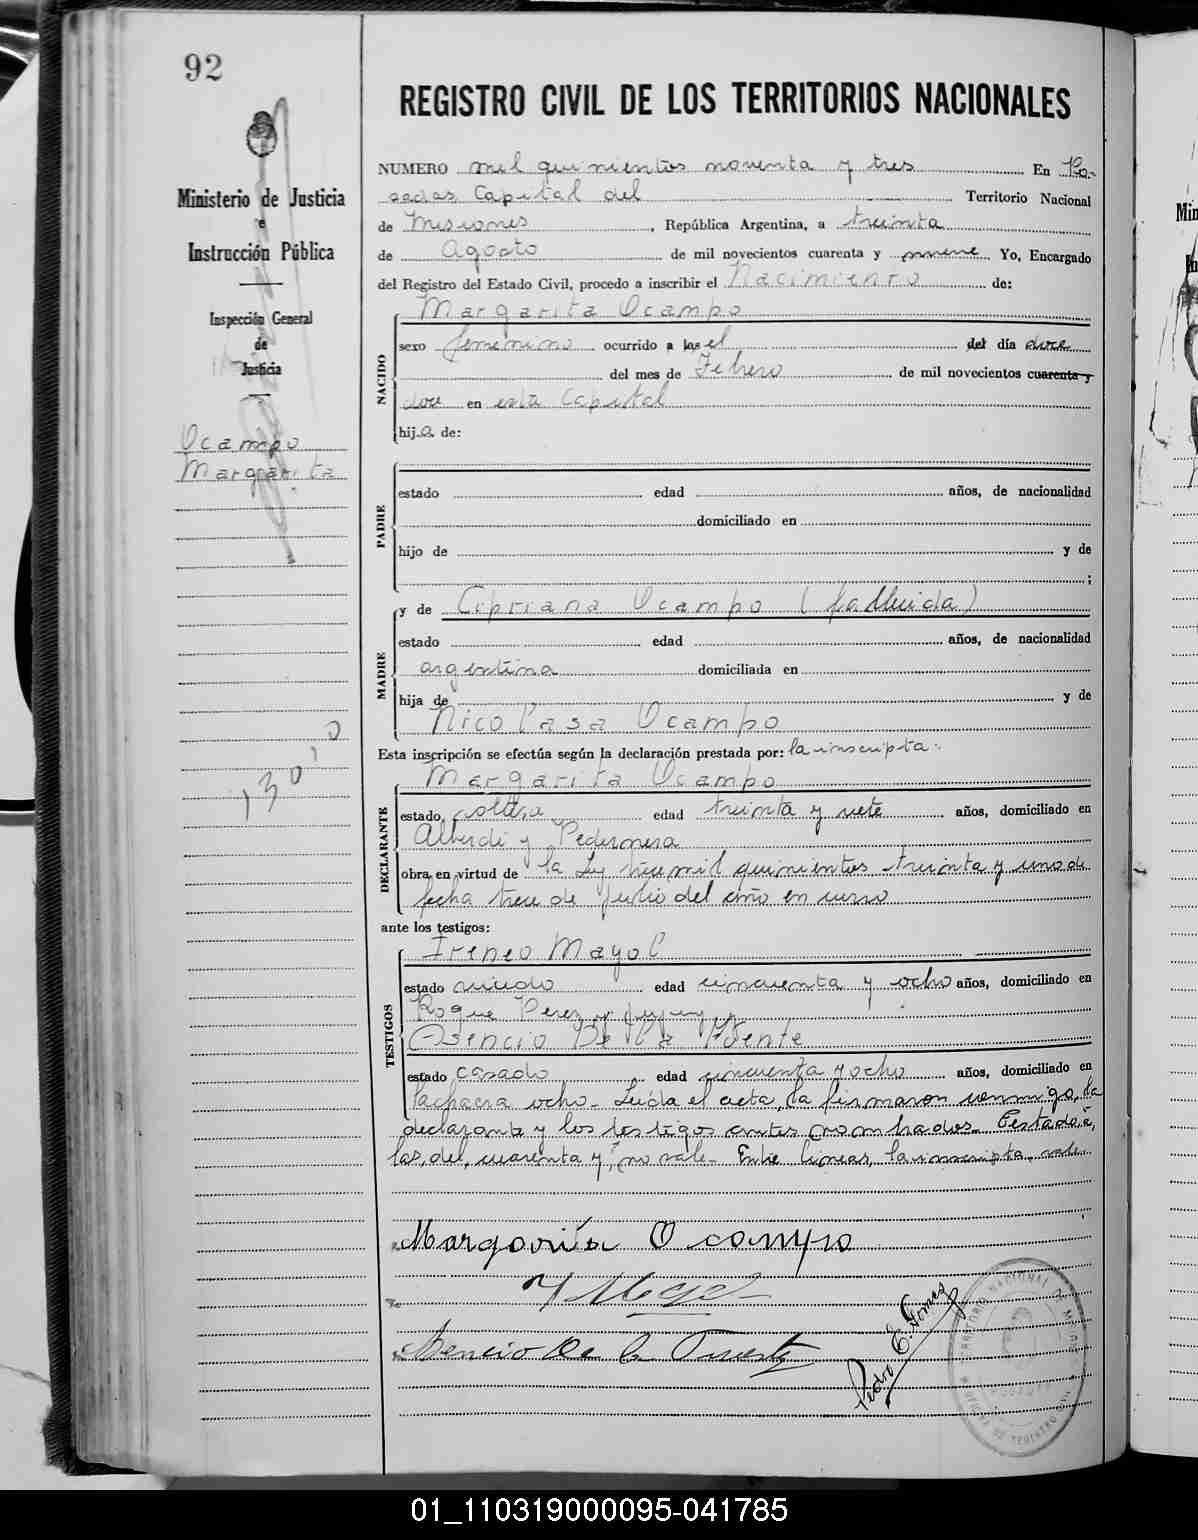 92
REGISTRO CIVIL DE LOS TERRITORIOS NACIONALES
Ministerio de Justicia
e
Instrucción Pública
Inspección General
de
Justicia
Ocampo
Margarita
NUMERO mil quinientos noventa y tres En Po-
sadas Capital del Territorio Nacional
de Misiones, República Argentina, a treinta
de Agosto de mil novecientos cuarenta y nueve Yo, Encargado
del Registro del Estado Civil, procedo a inscribir el Nacimiento de:
NACIDO
Margarita Ocampo
sexo femenino ocurrido a las el del día doce
del mes de Febrero de mil novecientos cuarenta y
doce en esta Capital
hija de:
PADRE
estado edad años, de nacionalidad
domiciliado en
hijo de y de
;
MADRE
y de Cipriana Ocampo (fallecida)
estado edad años, de nacionalidad
argentina domiciliada en
hija de y de
Nicolasa Ocampo
Esta inscripción se efectúa según la declaración prestada por: la inscripta.
DECLARANTE
Margarita Ocampo
estado soltera edad treinta y siete años, domiciliado en
Alberdi y Pedernera
obra en virtud de la Ley trece mil quinientos treinta y uno de
fecha trece de Julio del año en curso
ante los testigos:
TESTIGOS
Ireneo Mayol
estado viudo edad cincuenta y ocho años, domiciliado en
Roque Perez y Jujuy
Asencio De la Fuente
estado casado edad cincuenta y ocho años, domiciliado en
la chacra ocho. Leida el acta, la firmaron conmigo, la
declarante y los testigos antes nombrados. Testado: a,
las, del, cuarenta y, no vale. Entre lineas, la inscripta. vale.
Margarita Ocampo
Y Mayol
Asencio De la Fuente
Pedro E. Gomez
01_110319000095-041785